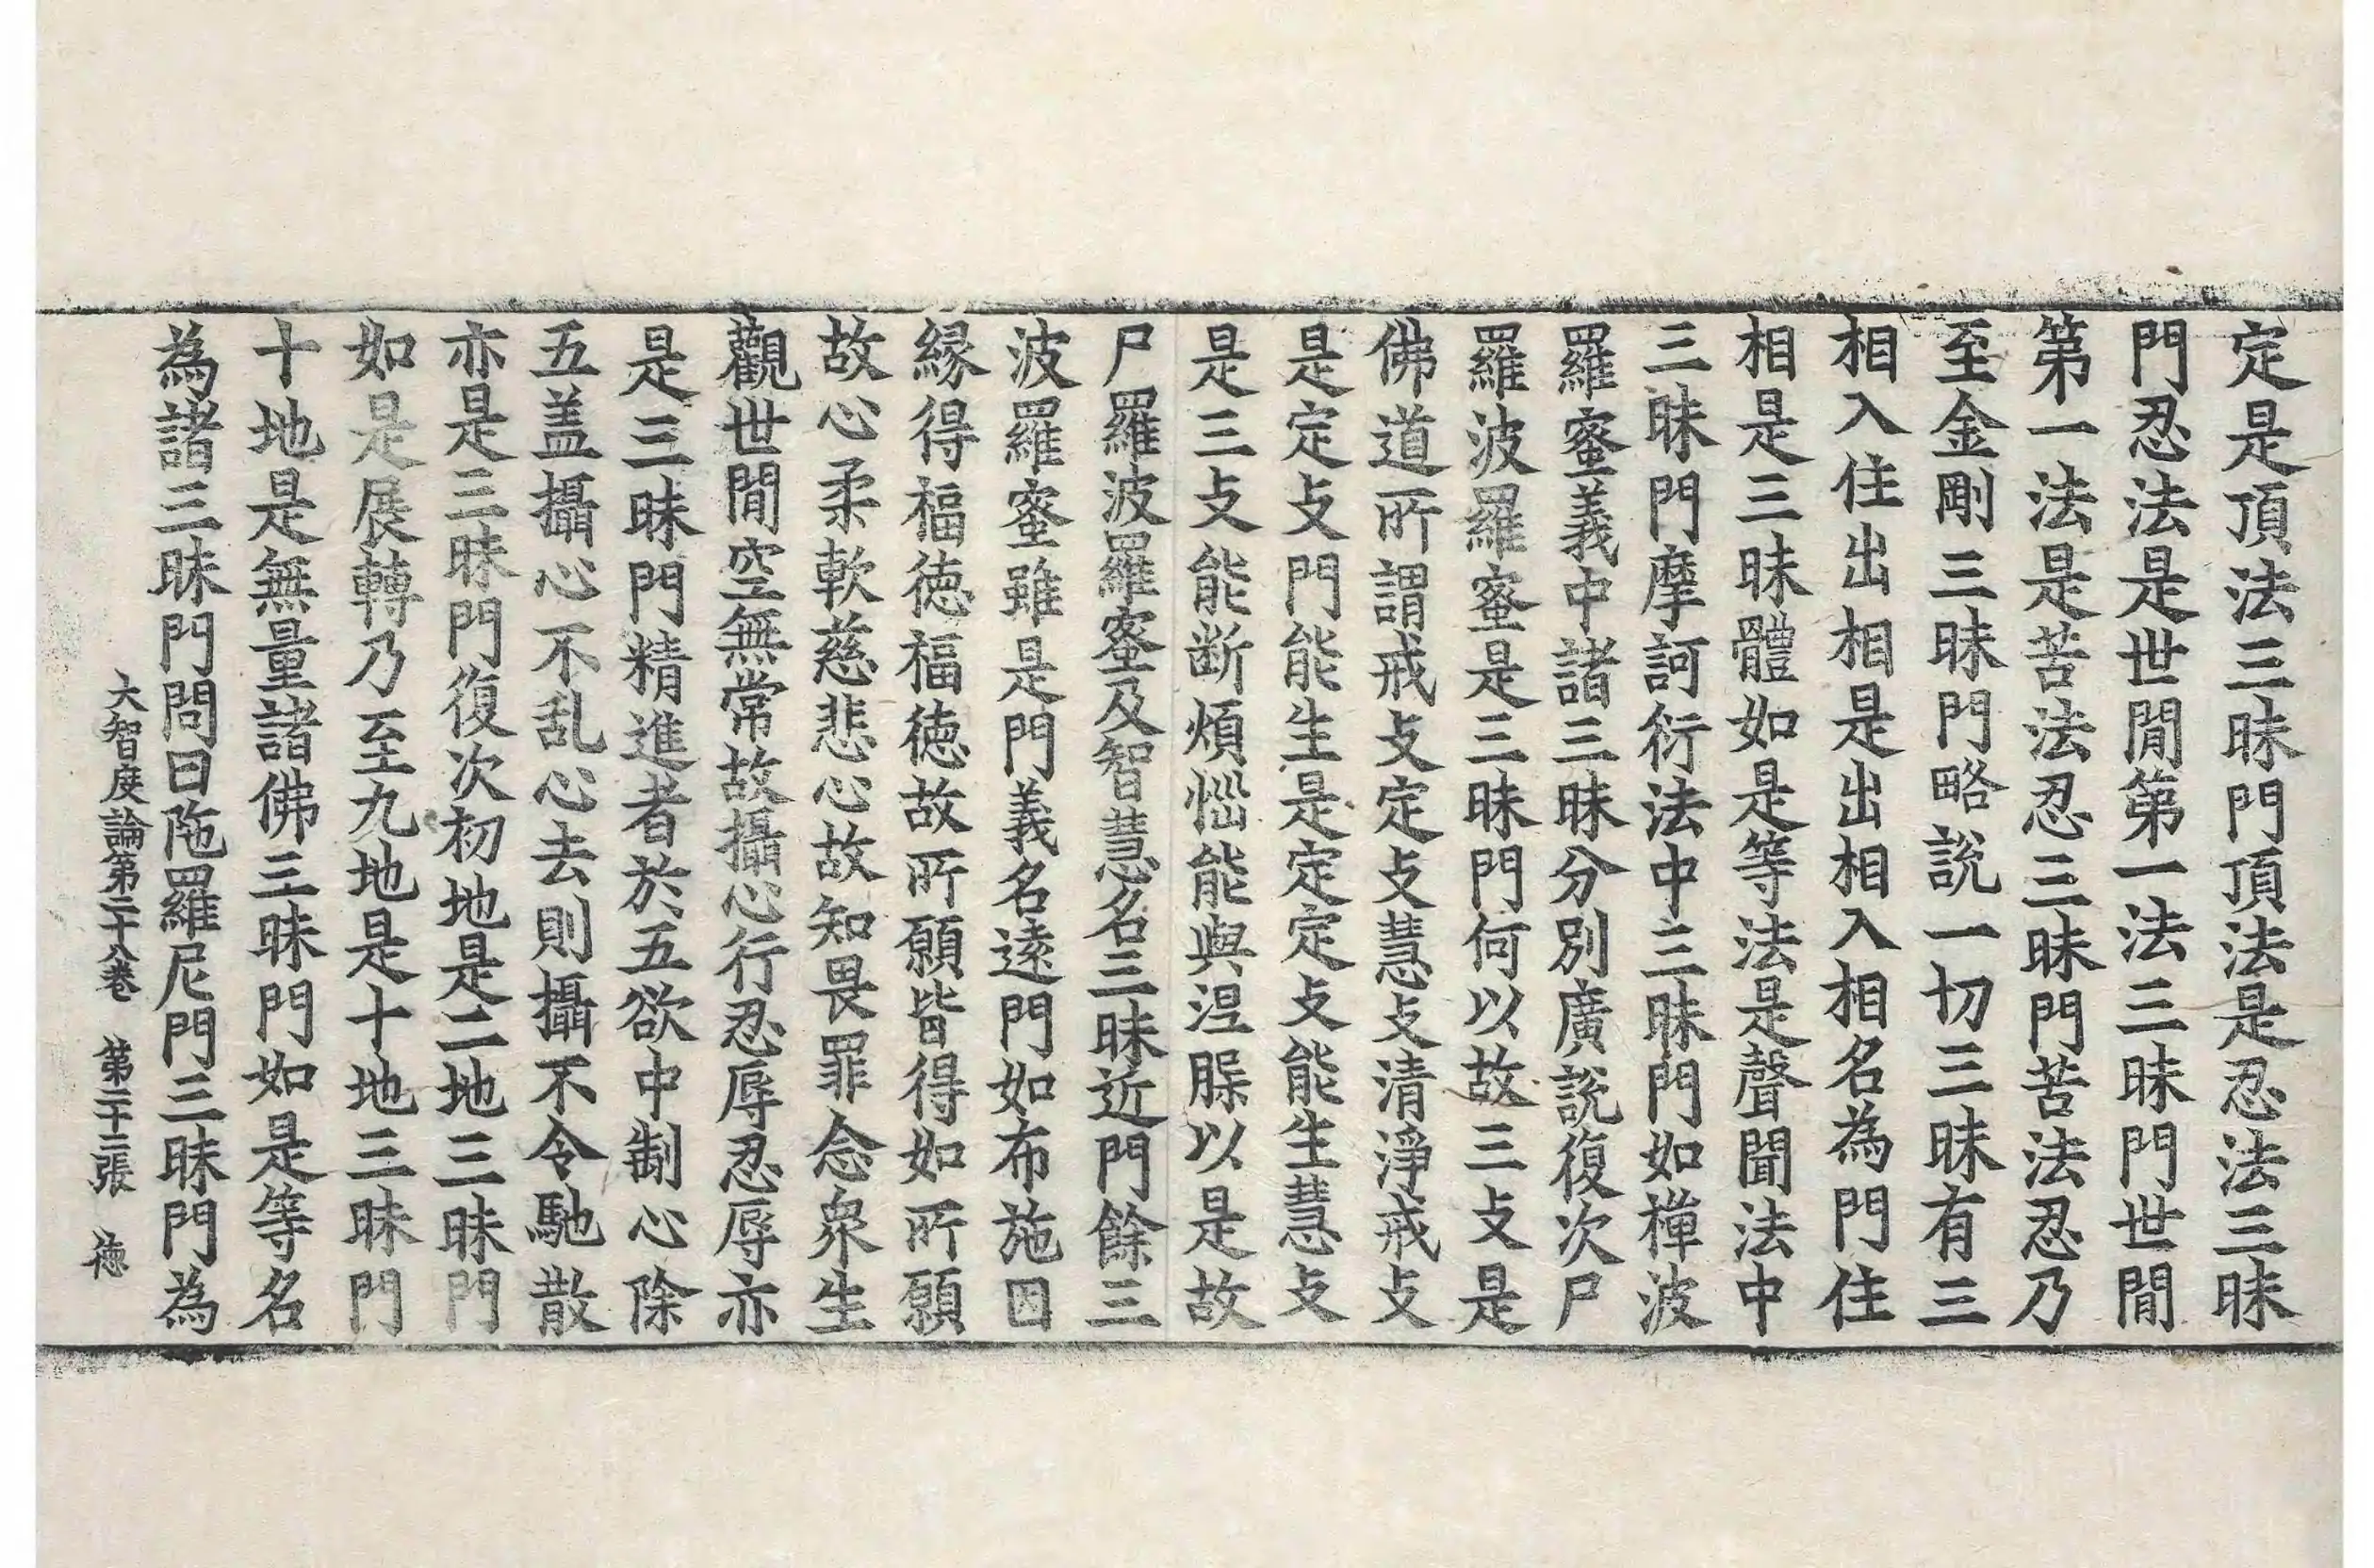 定是頂法三昧門頂法是忍法三昧
門忍法是世閒第一法三昧門世閒
第一法是苦法忍三昧門苦法忍乃
至金剛三昧門略說一切三昧有三
相入住出相是出相入相名為門住
相是三昧體如是等法是聲聞法中
三昧門摩訶衍法中三昧門如檀波
羅蜜義中諸三昧分別廣說復次尸
羅波羅蜜是三昧門何以故三攴是
佛道所謂戒攴定攴慧攴清淨戒攴
是定攴門能生是定定攴能生慧攴
是三攴能断煩惱能與涅槃以是故
尸羅波羅蜜及智慧名三昧近門餘三
波羅蜜雖是門義名遠門如布施因
縁得福德福德故所願皆得如所願
故心柔軟慈悲心故知畏罪念衆生
觀世閒空無常故攝心行忍辱忍辱亦
是三昧門精進者於五欲中制心除
五盖攝心不乱心去則攝不令馳散
亦是三昧門復次初地是二地三昧門
如是展轉乃至九地是十地三昧門
十地是無量諸佛三昧門如是等名
為諸三昧門問曰陁羅尼門三昧門為
大智度論第二十八卷　第二十三張　德